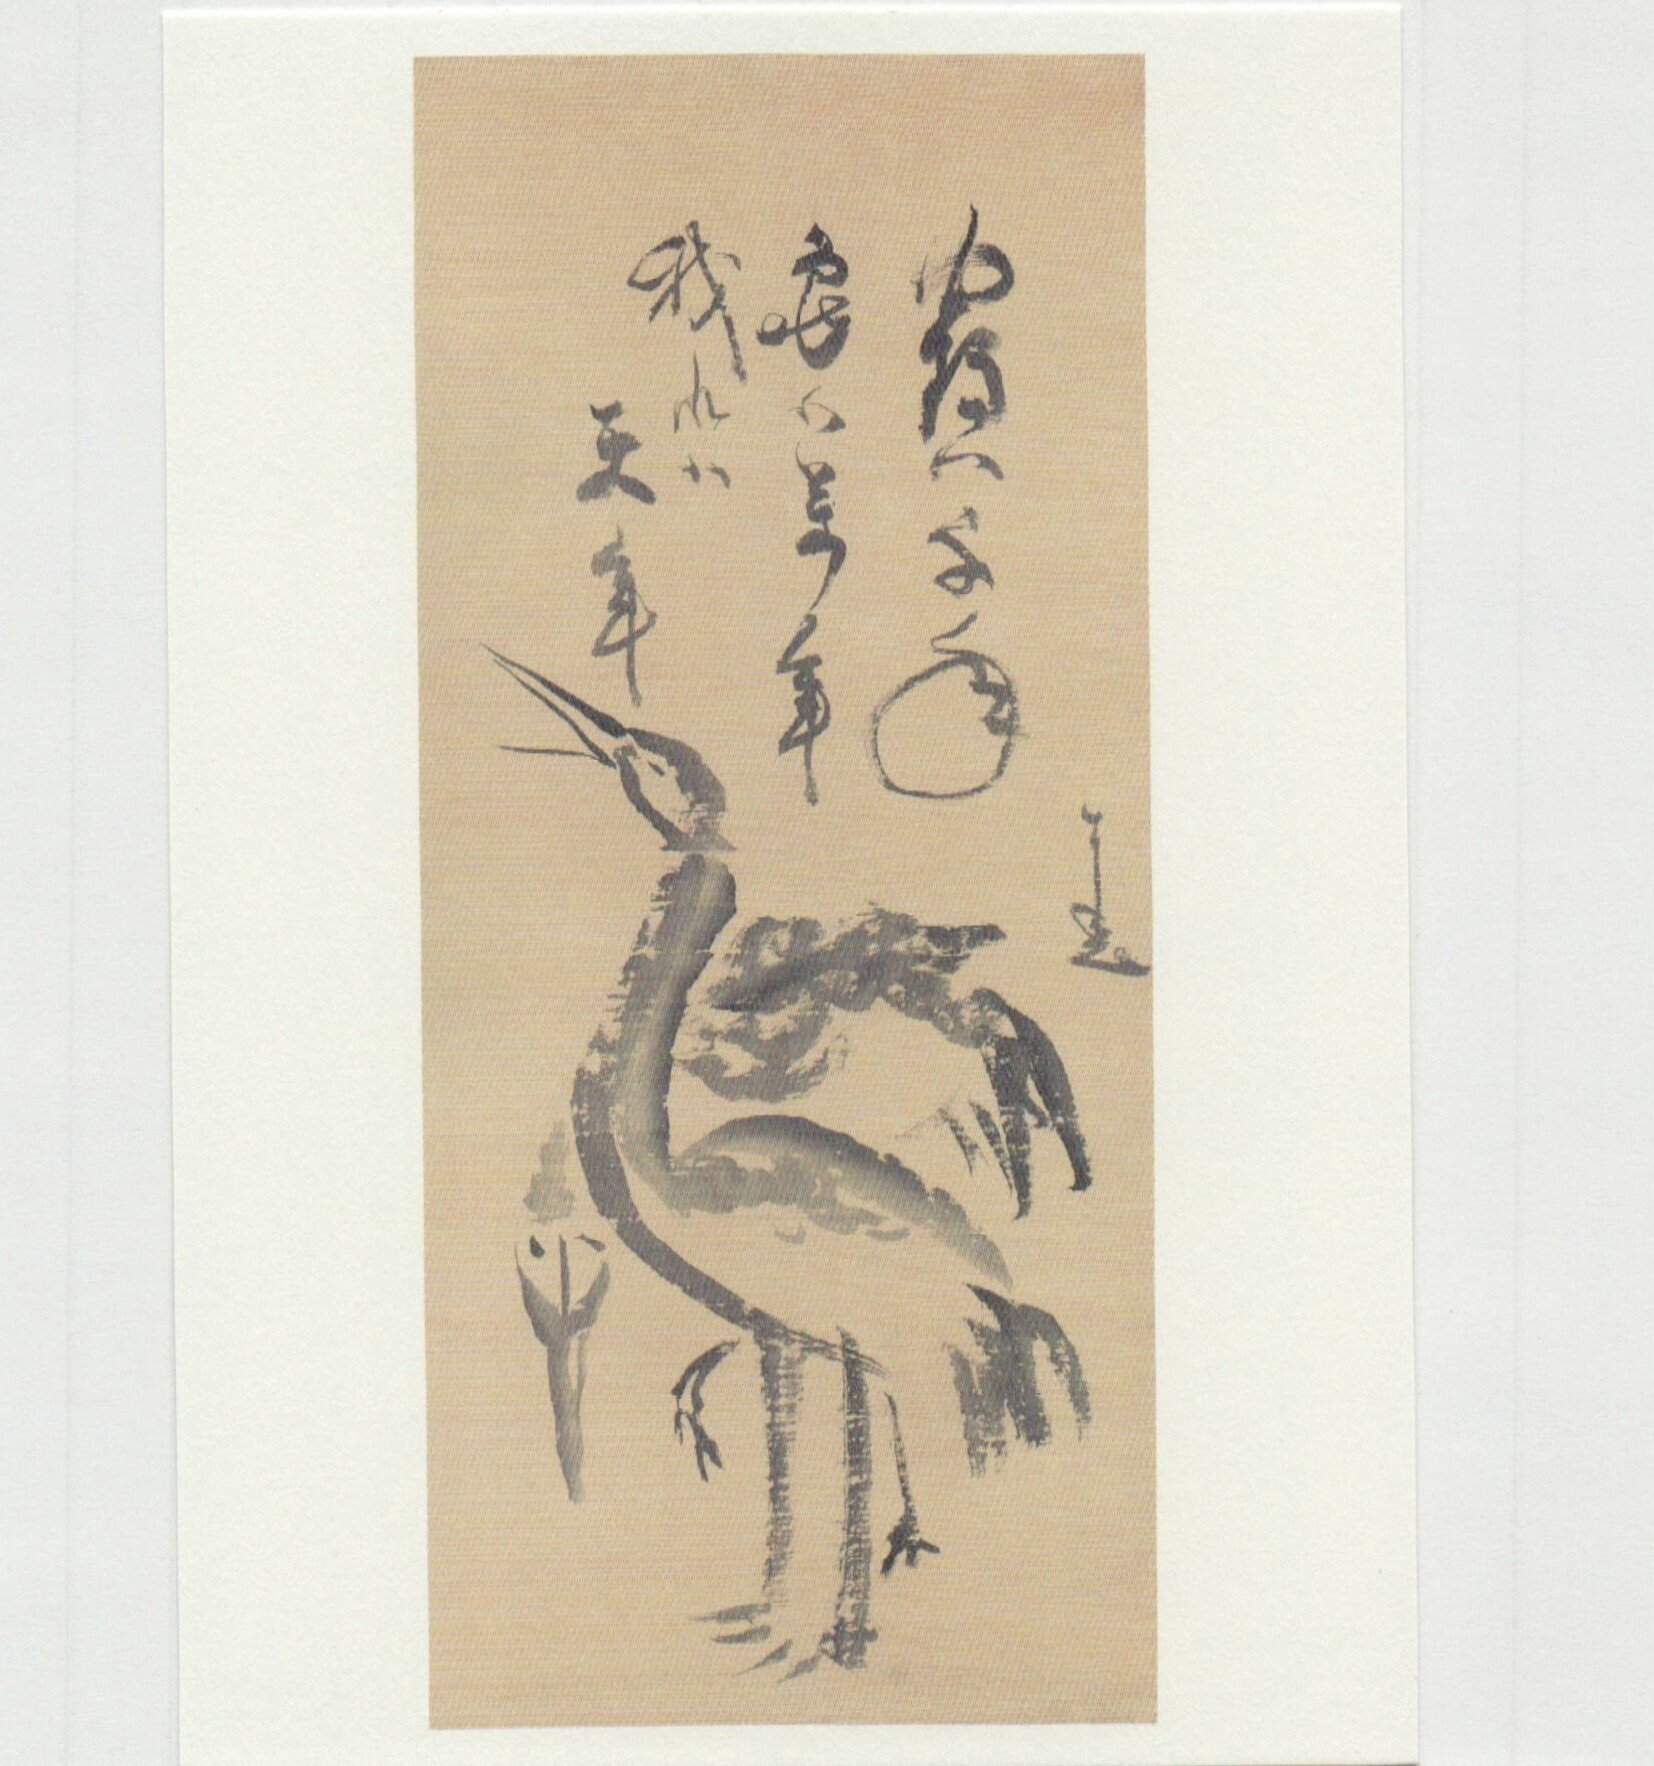 鶴ハ千年
亀ハ萬年
我れハ
天年